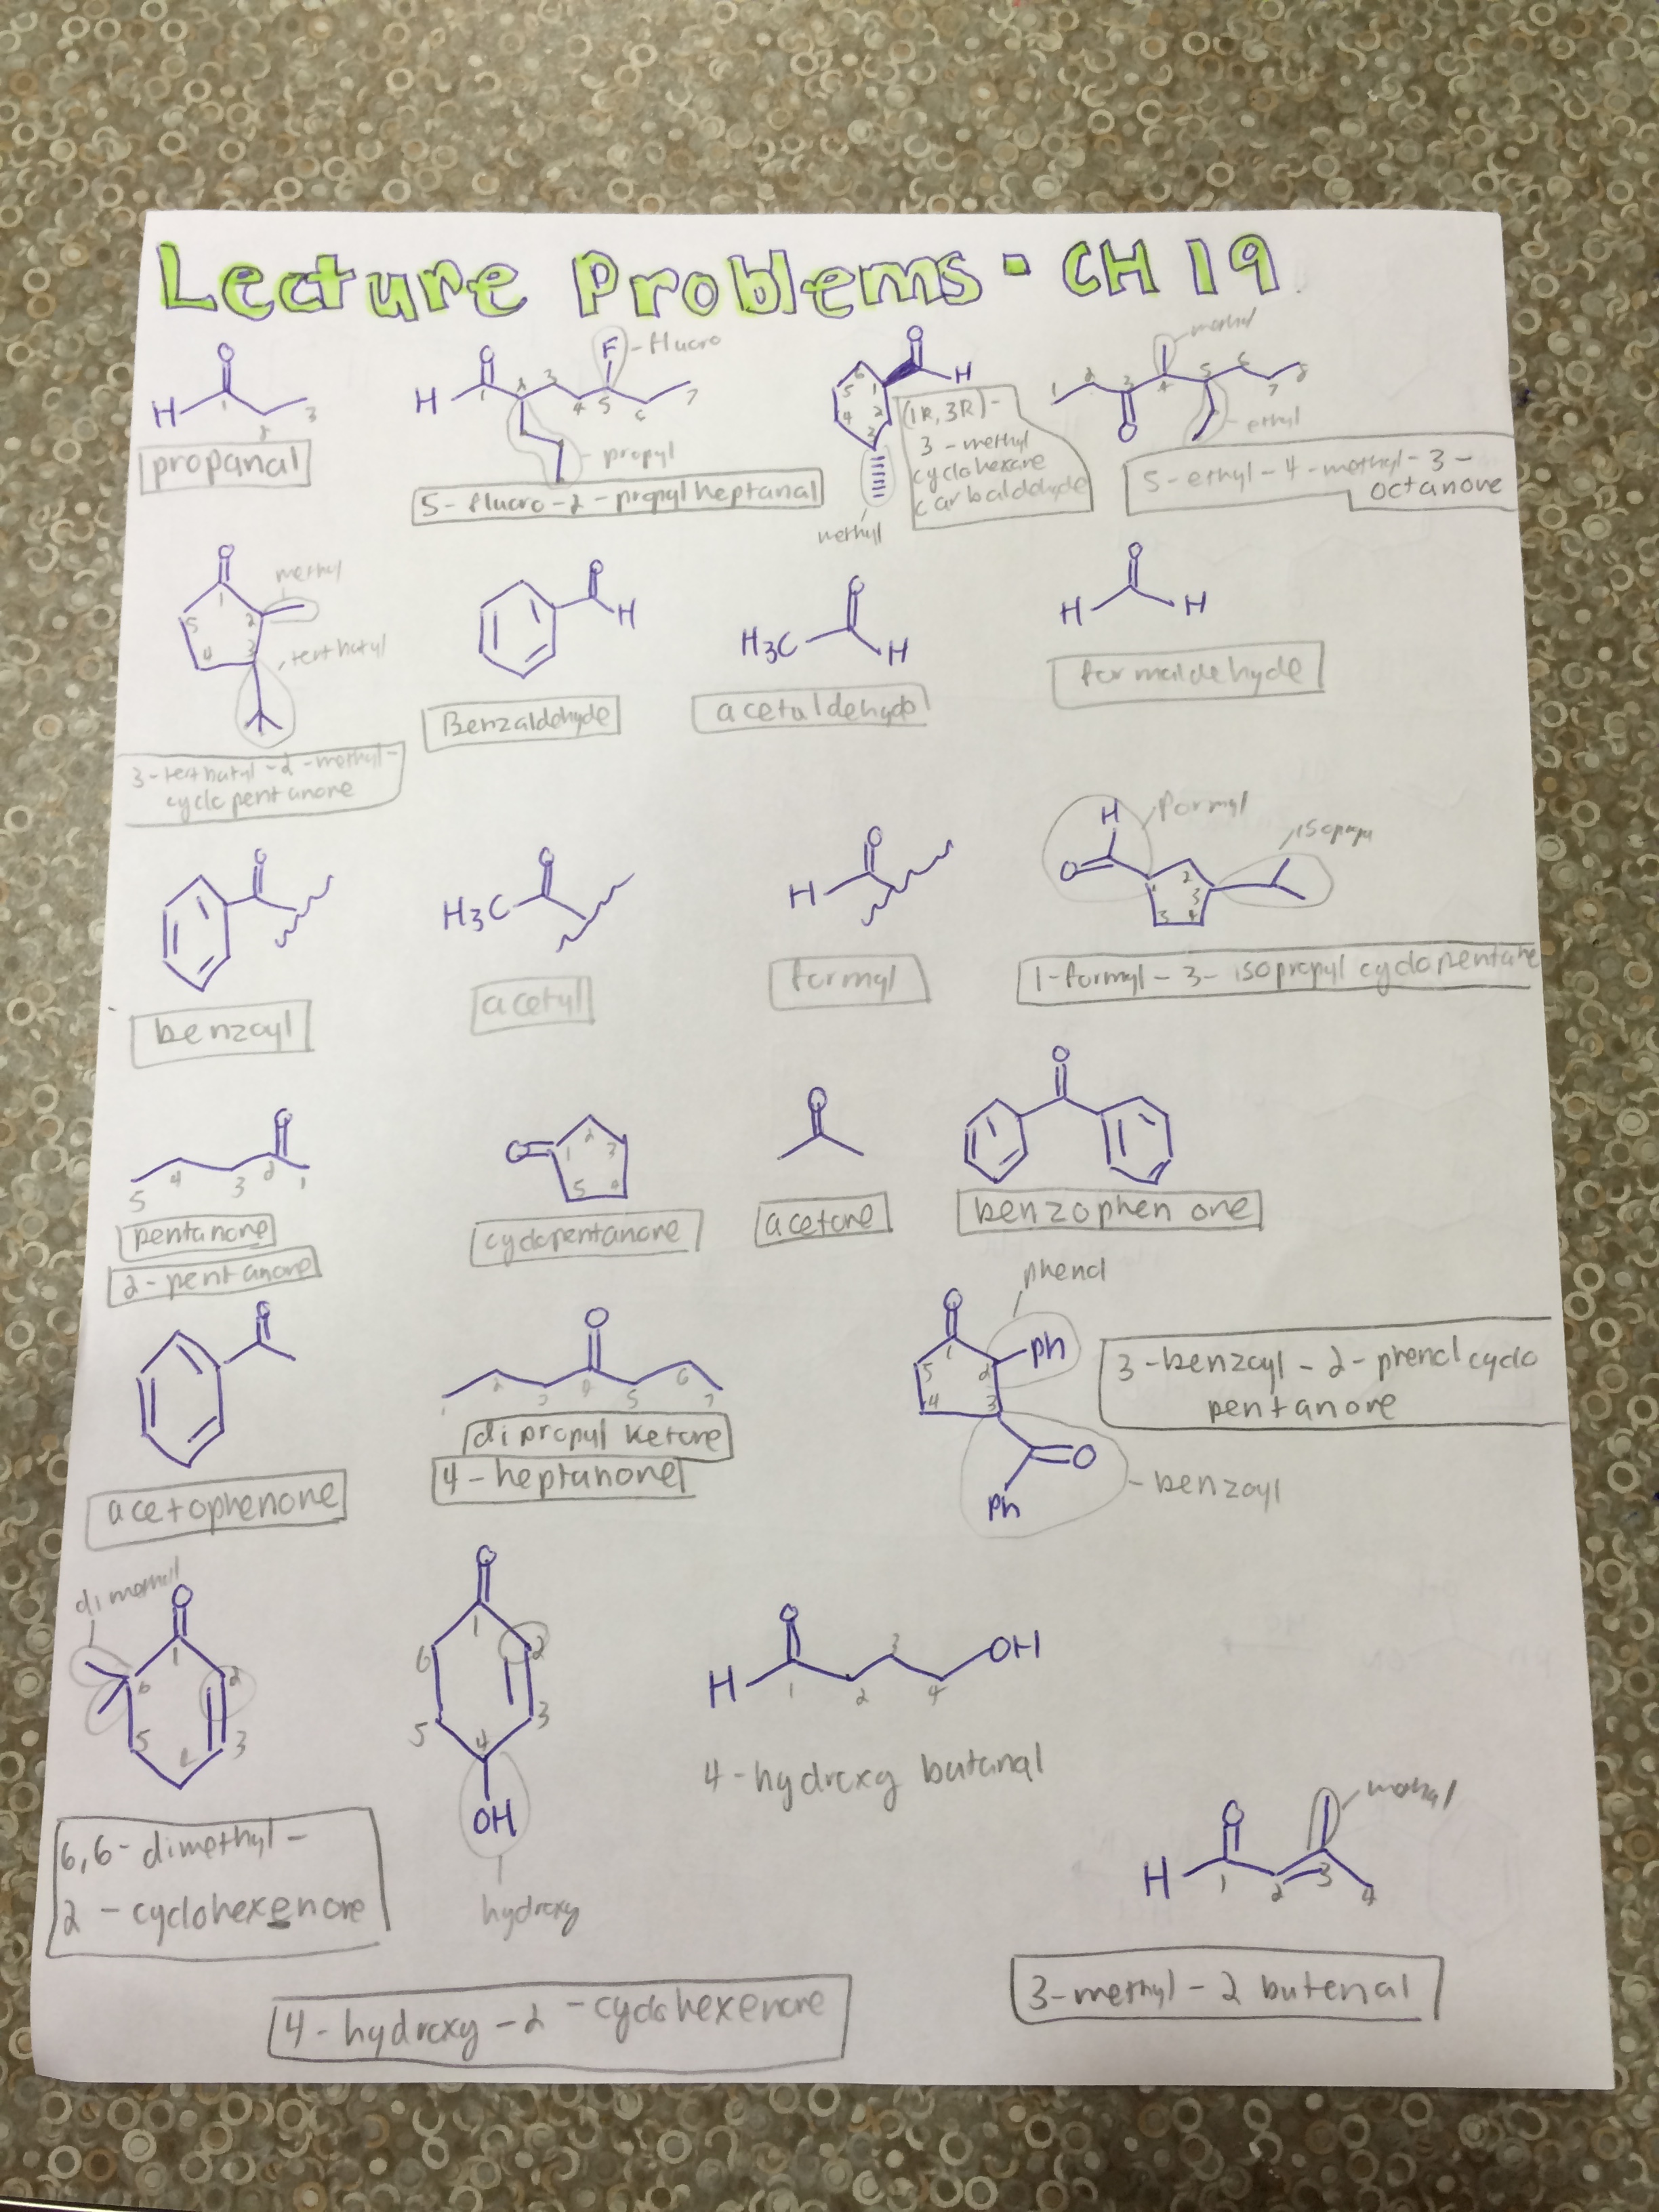 Lecture Problems - CH 19
O
H
1
2
3
propanal
O
H
1
2
3
4
5
6
7
F
- fluoro
- propyl
5-fluoro-2-propylheptanal
O
H
1
2
3
4
5
6
methyl
(1R, 3R)-
3-methyl
cyclohexane
carbaldehyde
1
2
3
4
5
6
7
8
O
methyl
- ethyl
5-ethyl-4-methyl-3-
octanone
O
1
2
3
4
5
methyl
tertbutyl
3-tertbutyl-2-methyl-
cyclopentanone
O
H
Benzaldehyde
O
H3C
H
acetaldehyde
O
H H
formaldehyde
O
benzoyl
O
H3C
acetyl
O
H
formyl
H
O
formyl
1
2
3
4
5
1-formyl-3-isopropyl cyclopentane
O
5 4 3 2 1
pentanone
2-pentanone
O
1
2
3
4
5
cyclopentanone
O
acetone
O
benzophenone
O
acetophenone
O
1 2 3 4 5 6 7
dipropyl ketone
4-heptanone
O
phenol
Ph
1
2
3
4
5
O
Ph
- benzoyl
3-benzoyl-2-phenol cyclo
pentanone
dimethyl
O
1
2
3
4
5
6
6,6-dimethyl-
2-cyclohexenone
O
1
2
3
4
5
6
OH
hydroxy
4-hydroxy-2-cyclohexenone
O
H
1
2
3
4
OH
4-hydroxy butanal
O
H
1
2
3
4
methyl
3-methyl-2 butenal